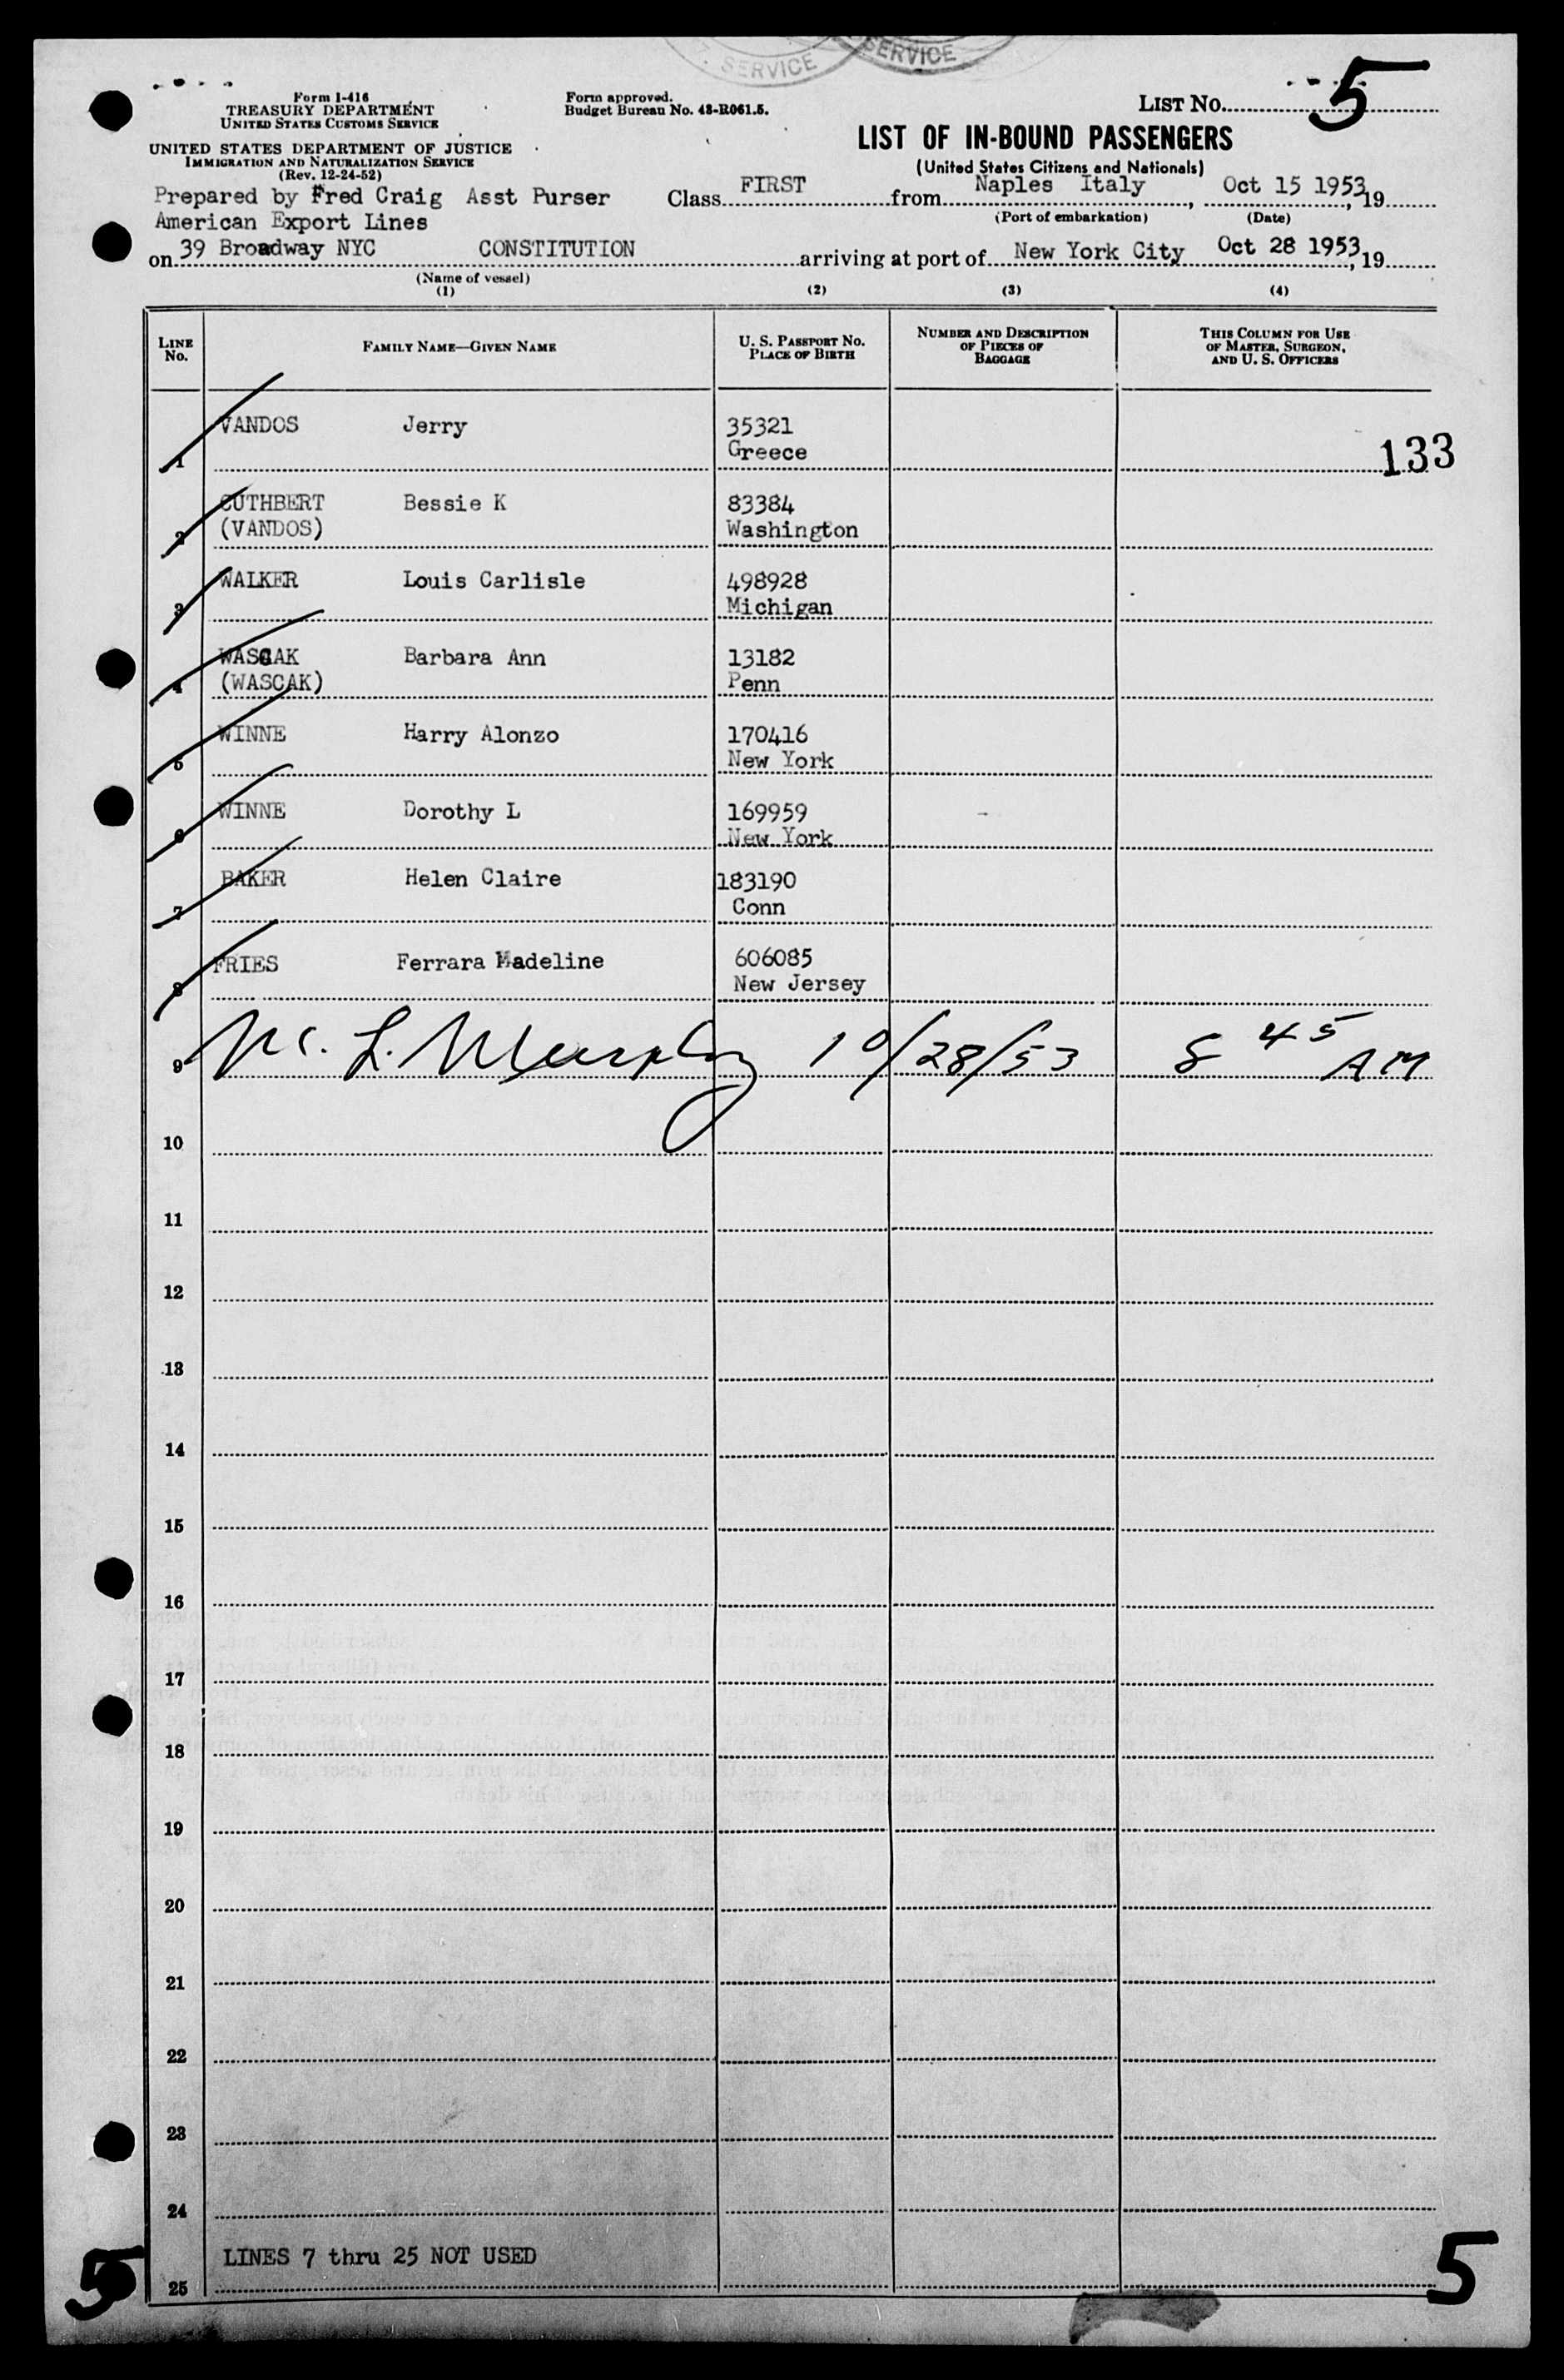 SERVICE SERVICE
Form I-416
TREASURY DEPARTMENT
UNITED STATES CUSTOMS SERVICE
UNITED STATES DEPARTMENT OF JUSTICE
IMMIGRATION AND NATURALIZATION SERVICE
(Rev. 12-24-52)
Form approved.
Budget Bureau No. 43-R061.5.
LIST No. 5
LIST OF IN-BOUND PASSENGERS
(United States Citizens and Nationals)
Prepared by Fred Craig Asst Purser Class FIRST from Naples Italy, Oct 15 1953, 19
(Port of embarkation) (Date)
American Export Lines
on 39 Broadway NYC CONSTITUTION arriving at port of New York City Oct 28 1953, 19
(Name of vessel)
(1) (2) (3) (4)
LINE No. FAMILY NAME—GIVEN NAME U. S. PASSPORT No. PLACE OF BIRTH NUMBER AND DESCRIPTION OF PIECES OF BAGGAGE THIS COLUMN FOR USE OF MASTER, SURGEON, AND U. S. OFFICERS
VANDOS Jerry 35321
1 Greece 133
CUTHBERT Bessie K 83384
2 (VANDOS) Washington
WALKER Louis Carlisle 498928
3 Michigan
WASCAK Barbara Ann 13182
4 (WASCAK) Penn
WINNE Harry Alonzo 170416
5 New York
WINNE Dorothy L 169959
6 New York
BAKER Helen Claire 183190
7 Conn
FRIES Ferrara Madeline 606085
8 New Jersey
9 M. L. Murphy 10/28/53 8 45 AM
10
11
12
13
14
15
16
17
18
19
20
21
22
23
24
LINES 7 thru 25 NOT USED
25
5 5